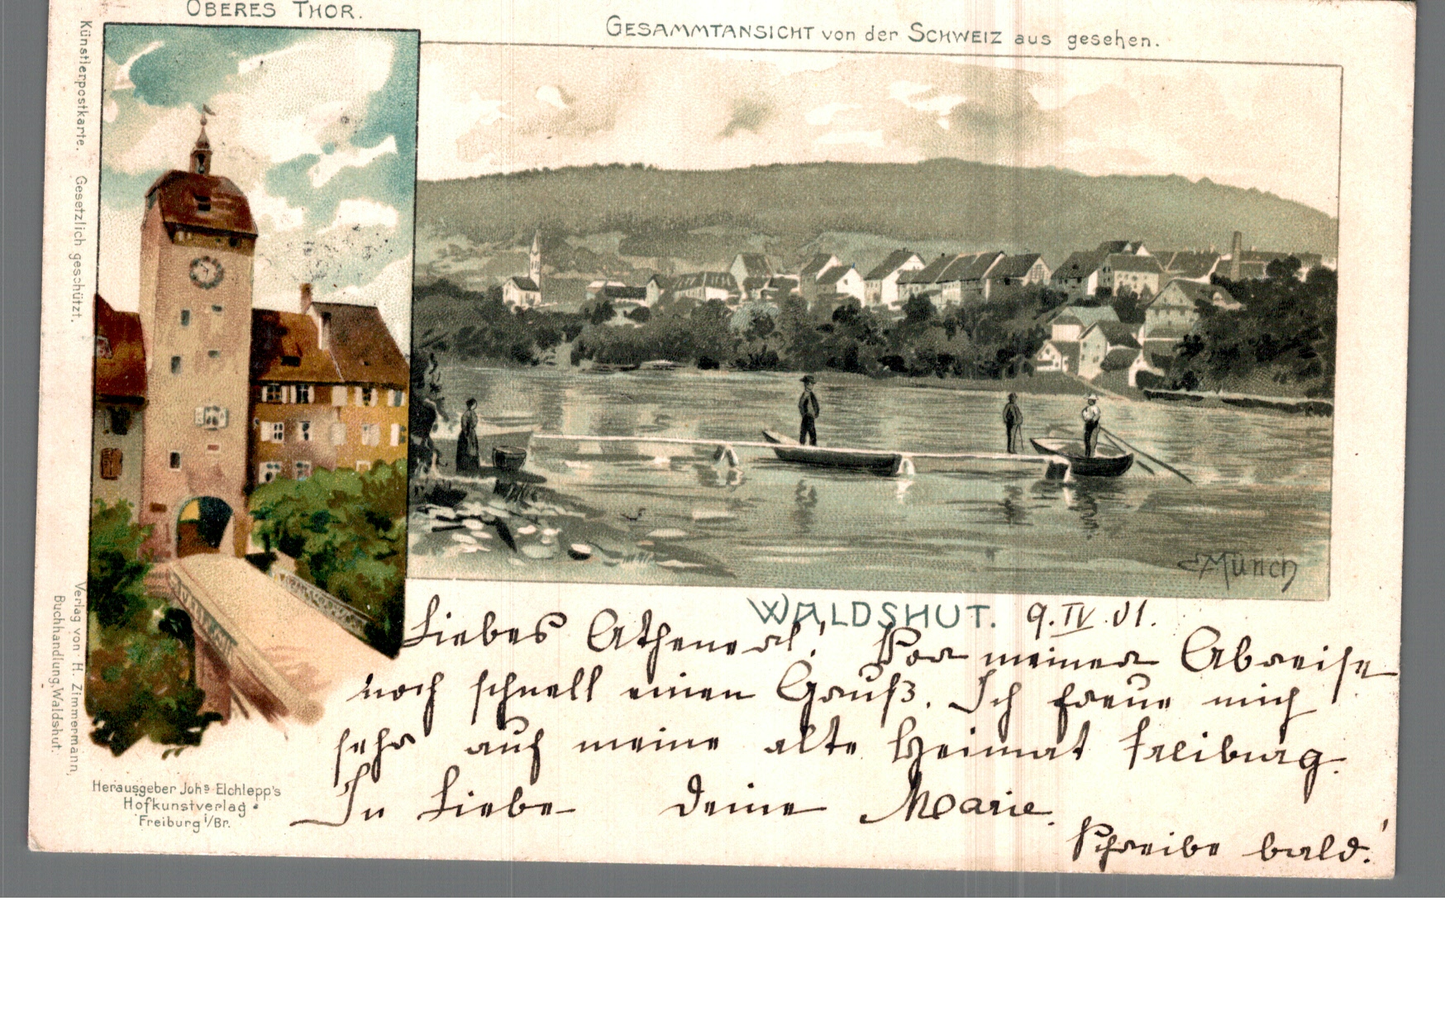 OBERES THOR.
GESAMMTANSICHT von der SCHWEIZ aus gesehen.
Künstlerpostkarte. Gesetzlich geschützt.
Verlag von H. Zimmermann,
Buchhandlung, Waldshut.
C Münch
WALDSHUT. 9. IV. 01.
Liebes! Vor meiner Abreise
noch schnell einen Gruß. Ich freue mich
sehr auf meine alte Heimat Freiburg.
In Liebe deine Marie.
Schreibe bald!
Herausgeber Johs Elchlepp's
Hofkunstverlag
Freiburg i/Br.